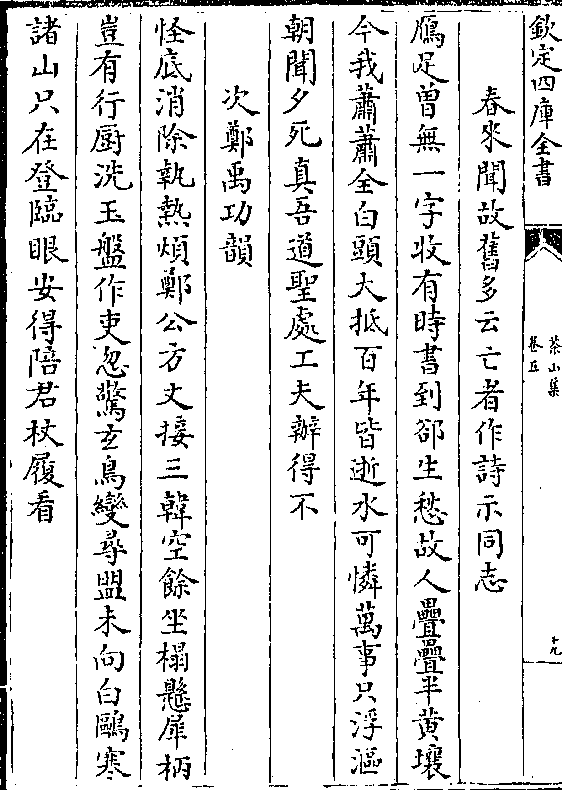 欽定四庫全書
茶山集
卷五
十九
春來聞故舊多云亡者作詩示同志
鴈足曾無一字收有時書到卻生愁故人疊疊半黄壤
今我蕭蕭全白頭大抵百年皆逝水可憐萬事只浮漚
朝聞夕死真吾道聖處工夫辦得不
次鄭禹功韻
怪底消除執熱煩鄭公方丈接三韓空餘坐榻懸犀柄
豈有行厨洗玉盤作吏忽驚玄鳥變尋盟未向白鷗寒
諸山只在登臨眼安得陪君杖履看